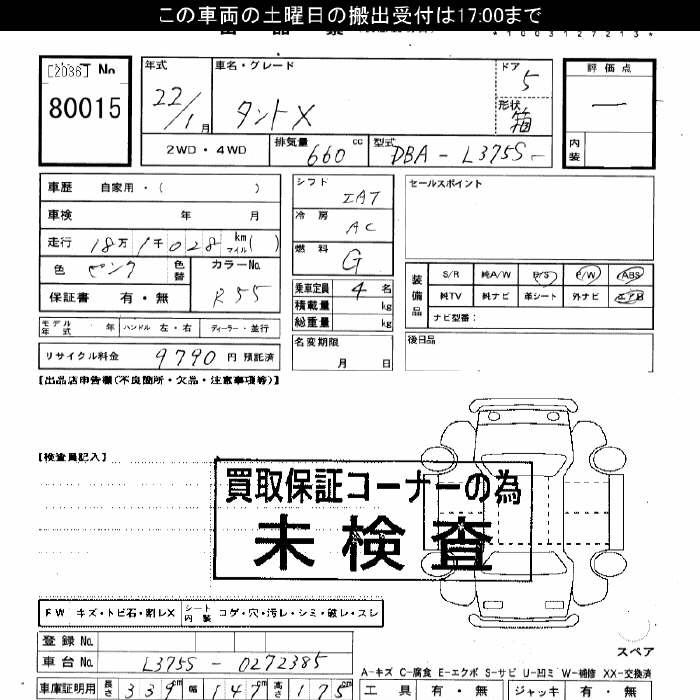 この車両の土曜日の搬出受付は17:00まで
*1003127213*
[2036] No 80015
年式 22/1月
車名・グレード タントX
ドア 5
形状 箱
評価点 —
内装
2WD・4WD
排気量 660 cc
型式 DBA-L375S-
車歴 自家用・( )
車検 年 月
走行 18万1千028 km マイル( )
色 ピンク 色替
カラーNo. R55
保証書 有・無
シフト IAT
冷房 AC
燃料 G
乗車定員 4 名
積載量 kg
総重量 kg
セールスポイント
装備品
S/R 純A/W P/S P/W ABS
純TV 純ナビ 革シート 外ナビ エアB
ナビ型番:
モデル年式 年 ハンドル 左・右 ディーラー・並行
名変期限 月 日
後日品
リサイクル料金 9790 円 預託済
【出品店申告欄(不良箇所・欠品・注意事項等)】
【検査員記入】
買取保証コーナーの為
未検査
FW キズ・トビ石・割レX シート内装 コゲ・穴・汚レ・シミ・破レ・スレ
登録No.
車台No. L375S-0272385
スペア
A-キズ C-腐食 E-エクボ S-サビ U-凹ミ W-補修 XX-交換済
車庫証明用 長さ 339cm 幅 147cm 高さ 175cm
工具 有・無 ジャッキ 有・無